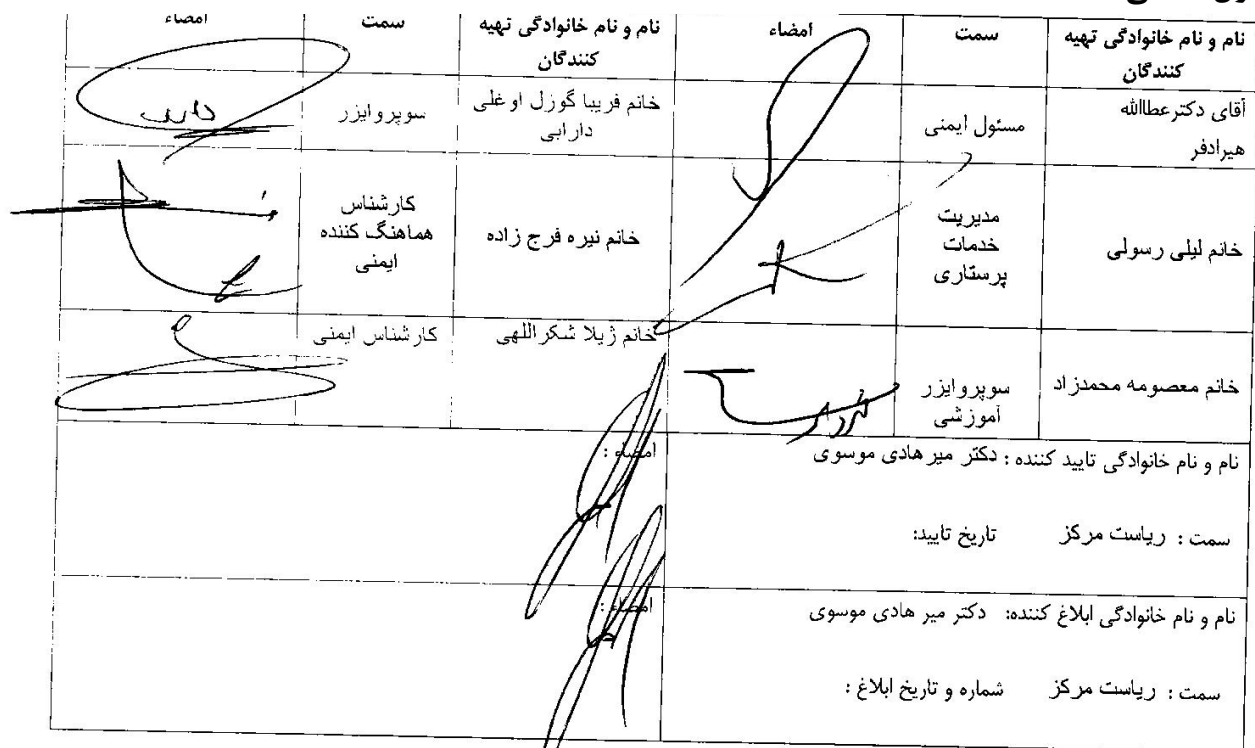 نام و نام خانوادگی تهیه کنندگان سمت امضاء نام و نام خانوادگی تهیه کنندگان سمت امضاء
آقای دکترعطاالله هیرادفر مسئول ایمنی خانم فریبا گوزل اوغلی دارابی سوپروایزر
خانم لیلی رسولی مدیریت خدمات پرستاری خانم نیره فرج زاده کارشناس هماهنگ کننده ایمنی
خانم معصومه محمدزاد سوپروایزر آموزشی خانم ژیلا شکراللهی کارشناس ایمنی
نام و نام خانوادگی تایید کننده : دکتر میر هادی موسوی امضاء :
سمت : ریاست مرکز تاریخ تایید:
نام و نام خانوادگی ابلاغ کننده: دکتر میر هادی موسوی امضاء :
سمت : ریاست مرکز شماره و تاریخ ابلاغ :